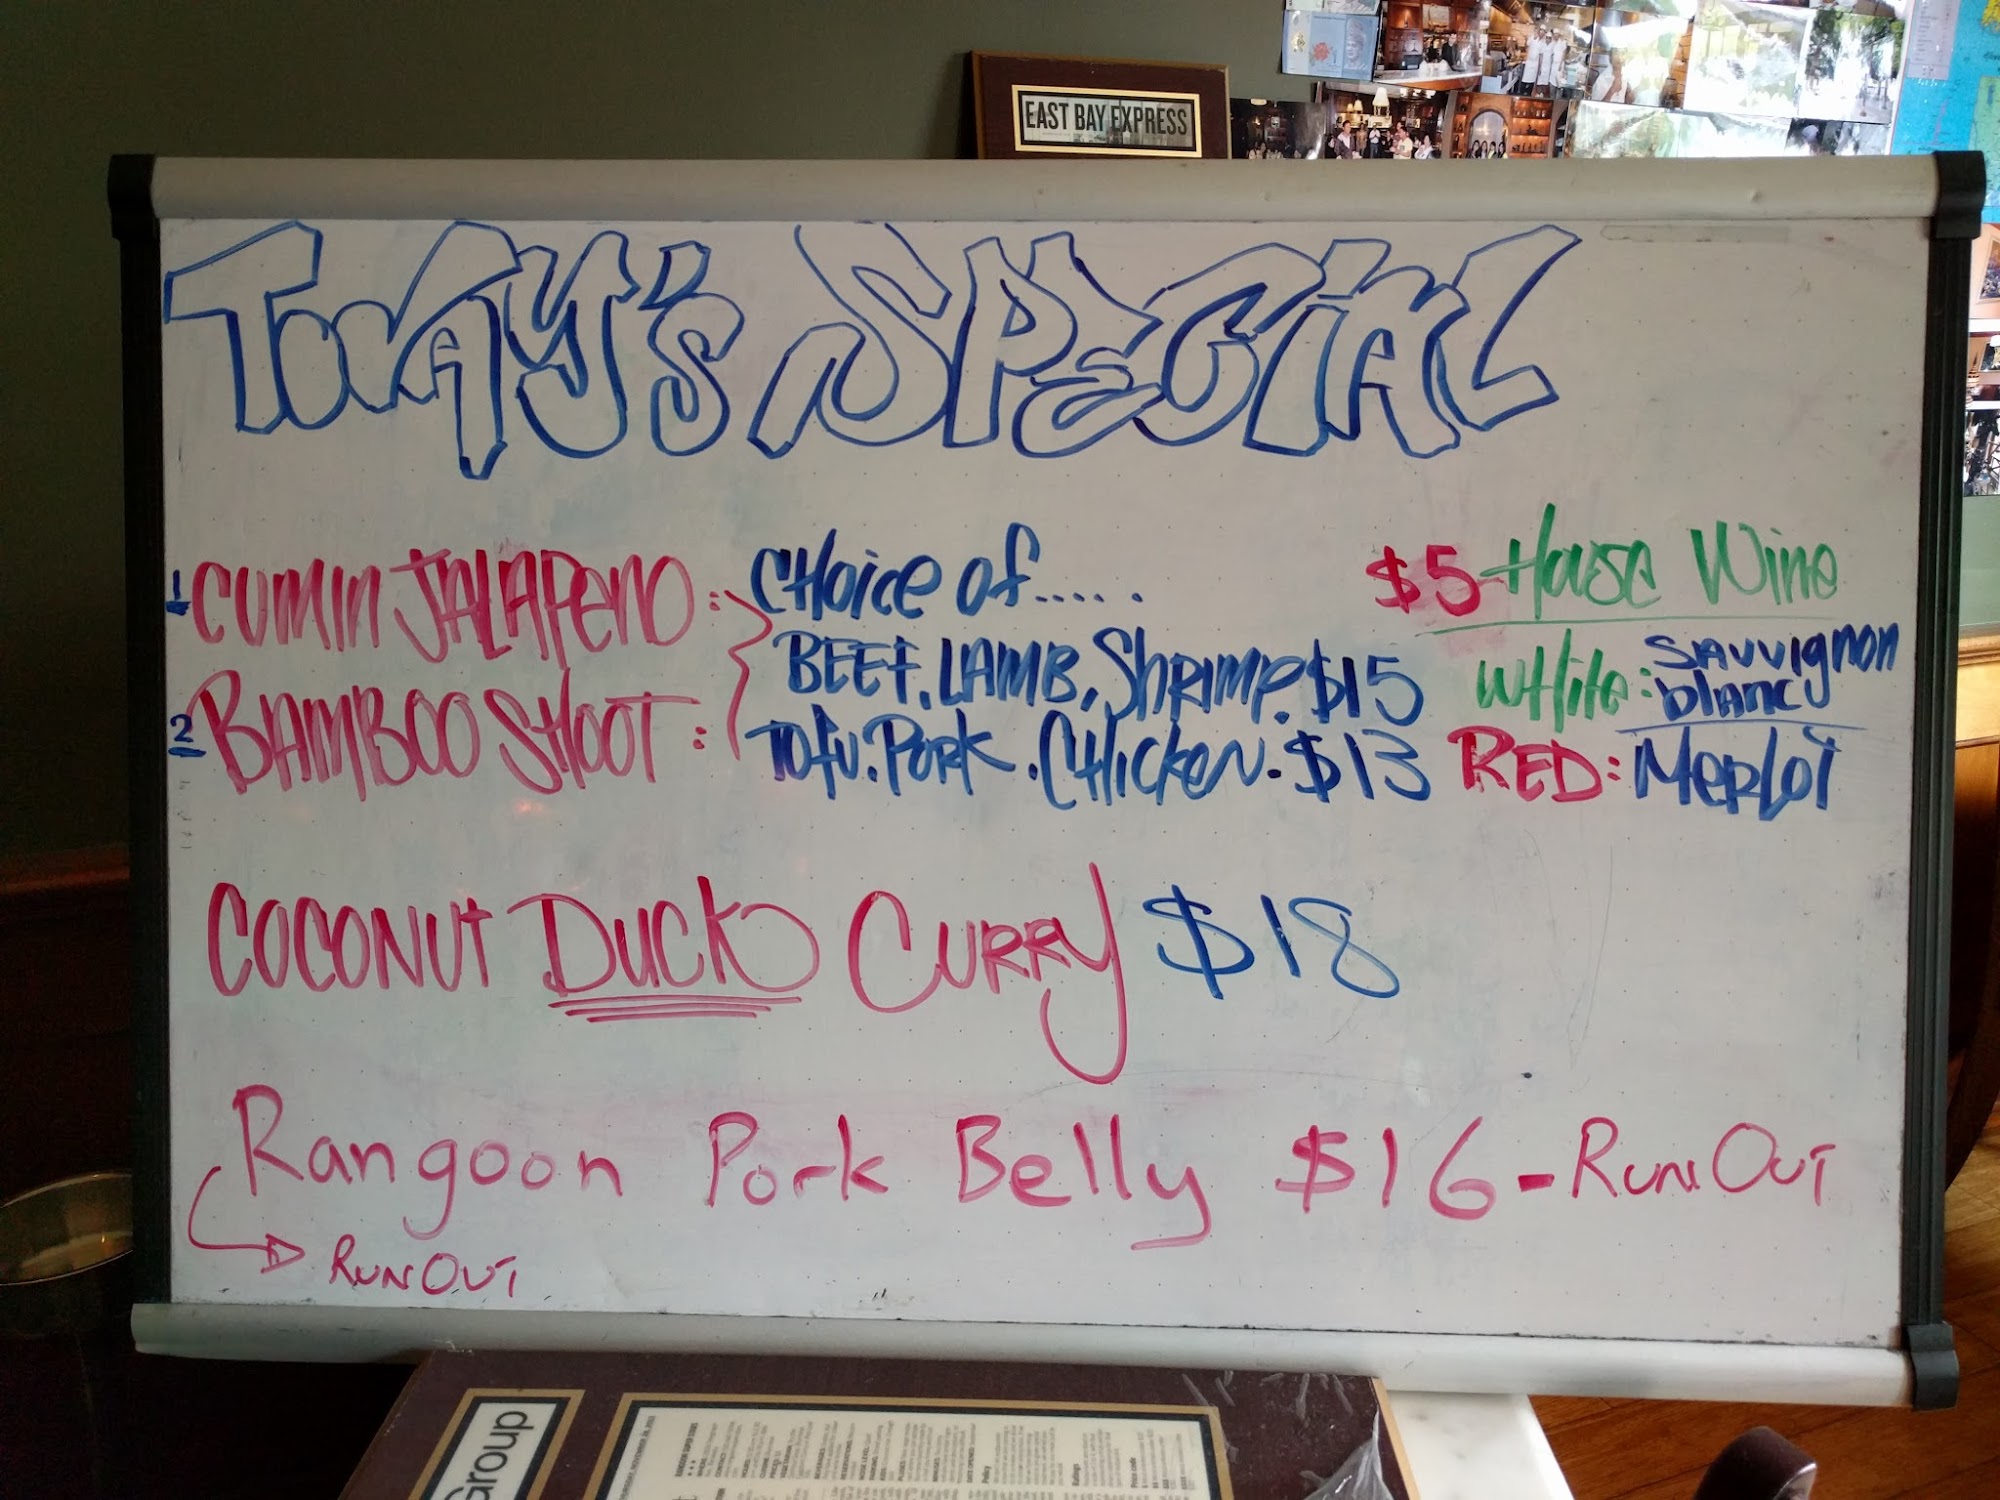 EAST BAY EXPRESS
TODAY'S SPECIAL
1 CUMIN JALAPENO :
2 BAMBOO SHOOT :
CHOICE OF.....
BEEF. LAMB. SHRIMP. $15
TOFU. PORK. CHICKEN. $13
$5 House Wine
WHite: SAUVVIgNON
blanc
RED: MERLOT
COCONUT DUCK CURRY $18
Rangoon Pork Belly $16 - RUN OUT
RUN OUT
Group